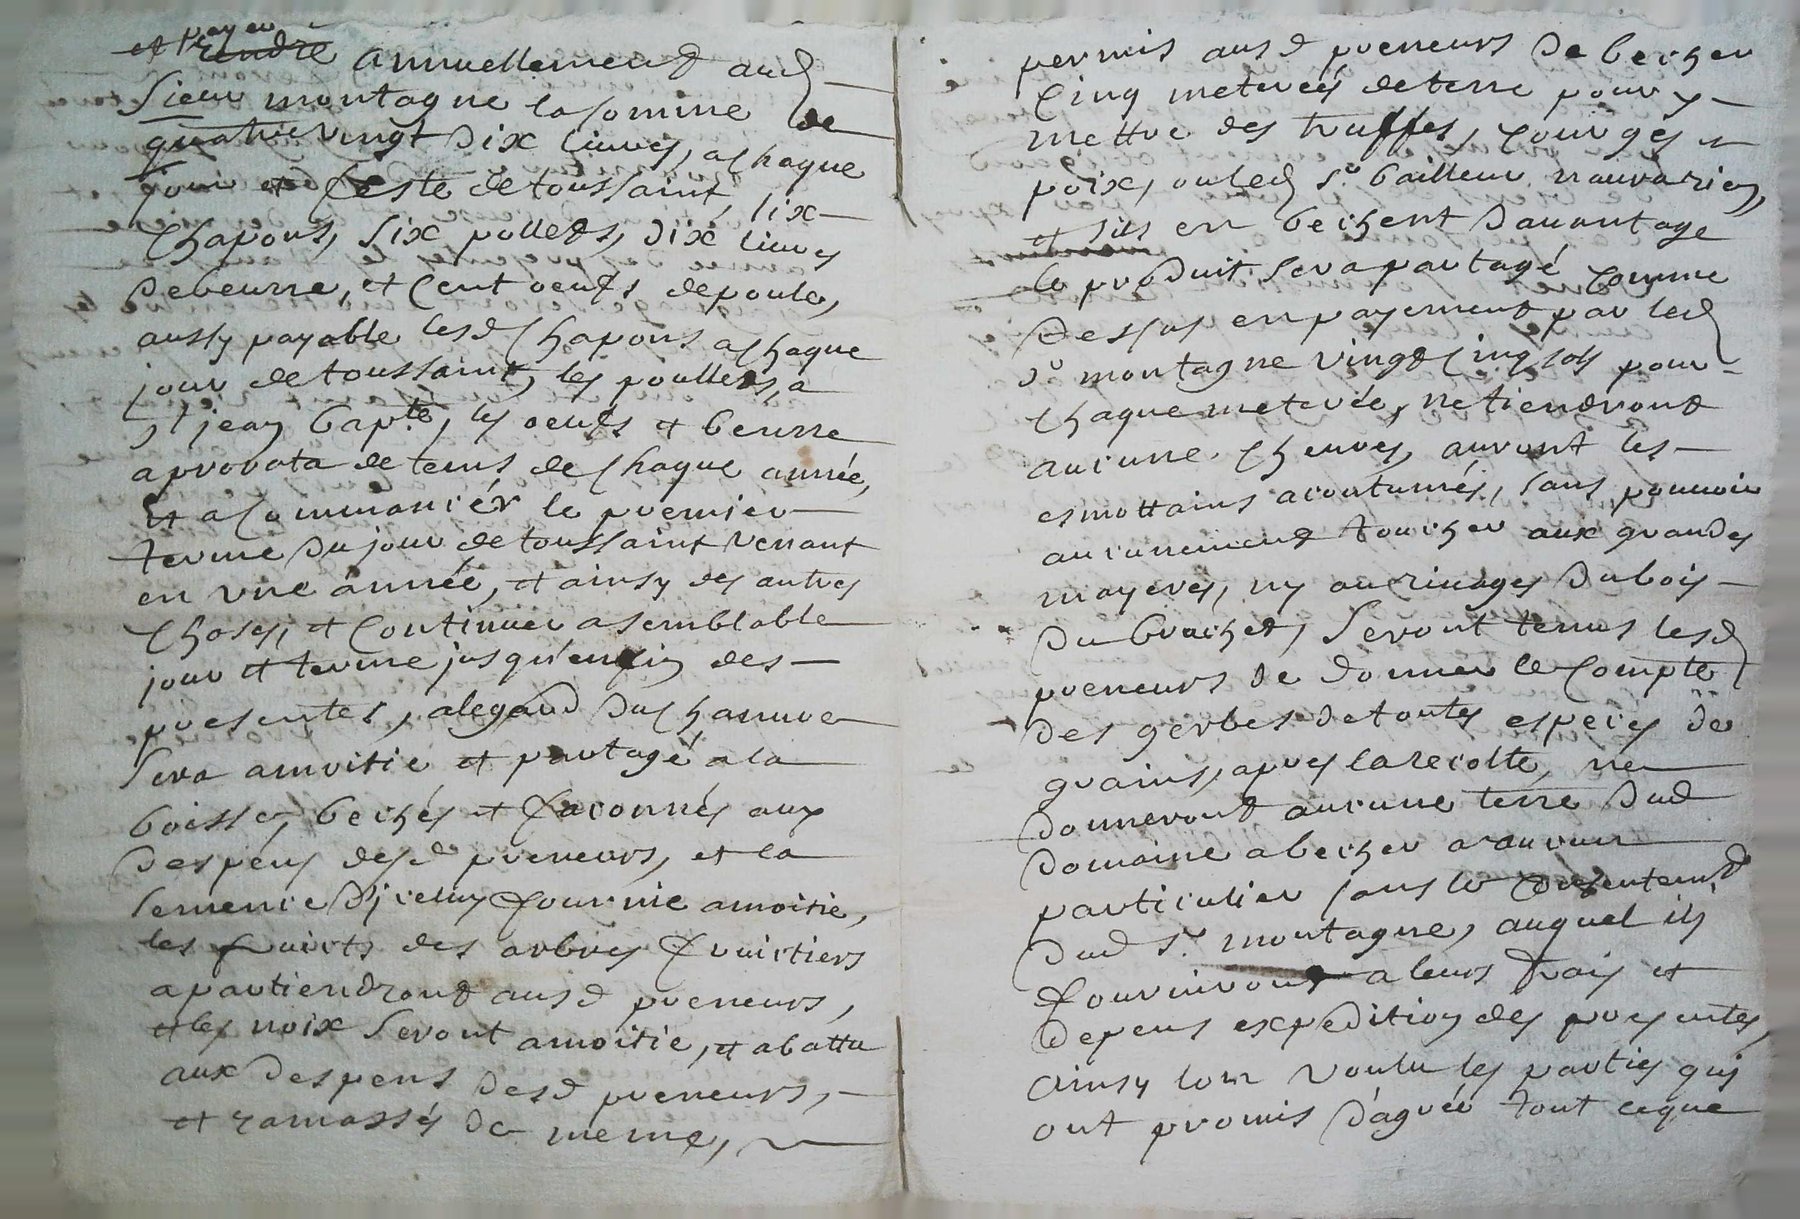 et payer
rendre annuellement aud
Sieur montagne la somme de
quatre vingt dix livres, a chaque
jour et feste de toussaint, six
chapons, six pollets, dix livres
de beurre, et cent oeufs de poule,
aussy payable lesd chapons a chaque
jour de toussaint, les poullets, a
st jean bapte, les oeufs et beurre
a prorata de tems de chaque année,
et a commancér le premier
terme du jour de toussaint venant
en une année, et ainsy des autres
choses, et continuer a semblable
jour et terme jusqu'en fin des
presentes, a legard du chanvre
sera amoitie et partagé a la
boisse, bechés et faconnés aux
despens desd preneurs, et la
semence d'jceluy fournie amoitie,
les fruicts des arbres fruictiers
apartiendront ausd preneurs,
et les noix seront amoitié, et abattu
aux despens desd preneurs,
et ramassés de meme,
permis ausd preneurs de becher
cinq meterées de terre pour y
mettre des truffes, courges et
poix, ou led sr bailleur n'aura rien,
et sils en bechent davantage
le produit sera partagé comme
dessus en payement par led
sr montagne vingt cinq sols pour
chaque meterée, ne tiendront
aucune chevres, auront les
esmottains acoutumés, sans pouvoir
aucunement toucher aux grandes
mayeres, ny au rivages du bois
du brachet, seront tenus lesd
preneurs de donner le compte
des gerbes de toutes especes de
grains, apres la recolte, ne
donneront aucune terre dud
domaine a becher a aucun
particulier sans le consentemt
dud sr montagne, auquel ils
fourniront a leurs frais et
depens expedition des presentes,
ainsy lon voulu les parties qui
ont promis d'agréer tout ceque